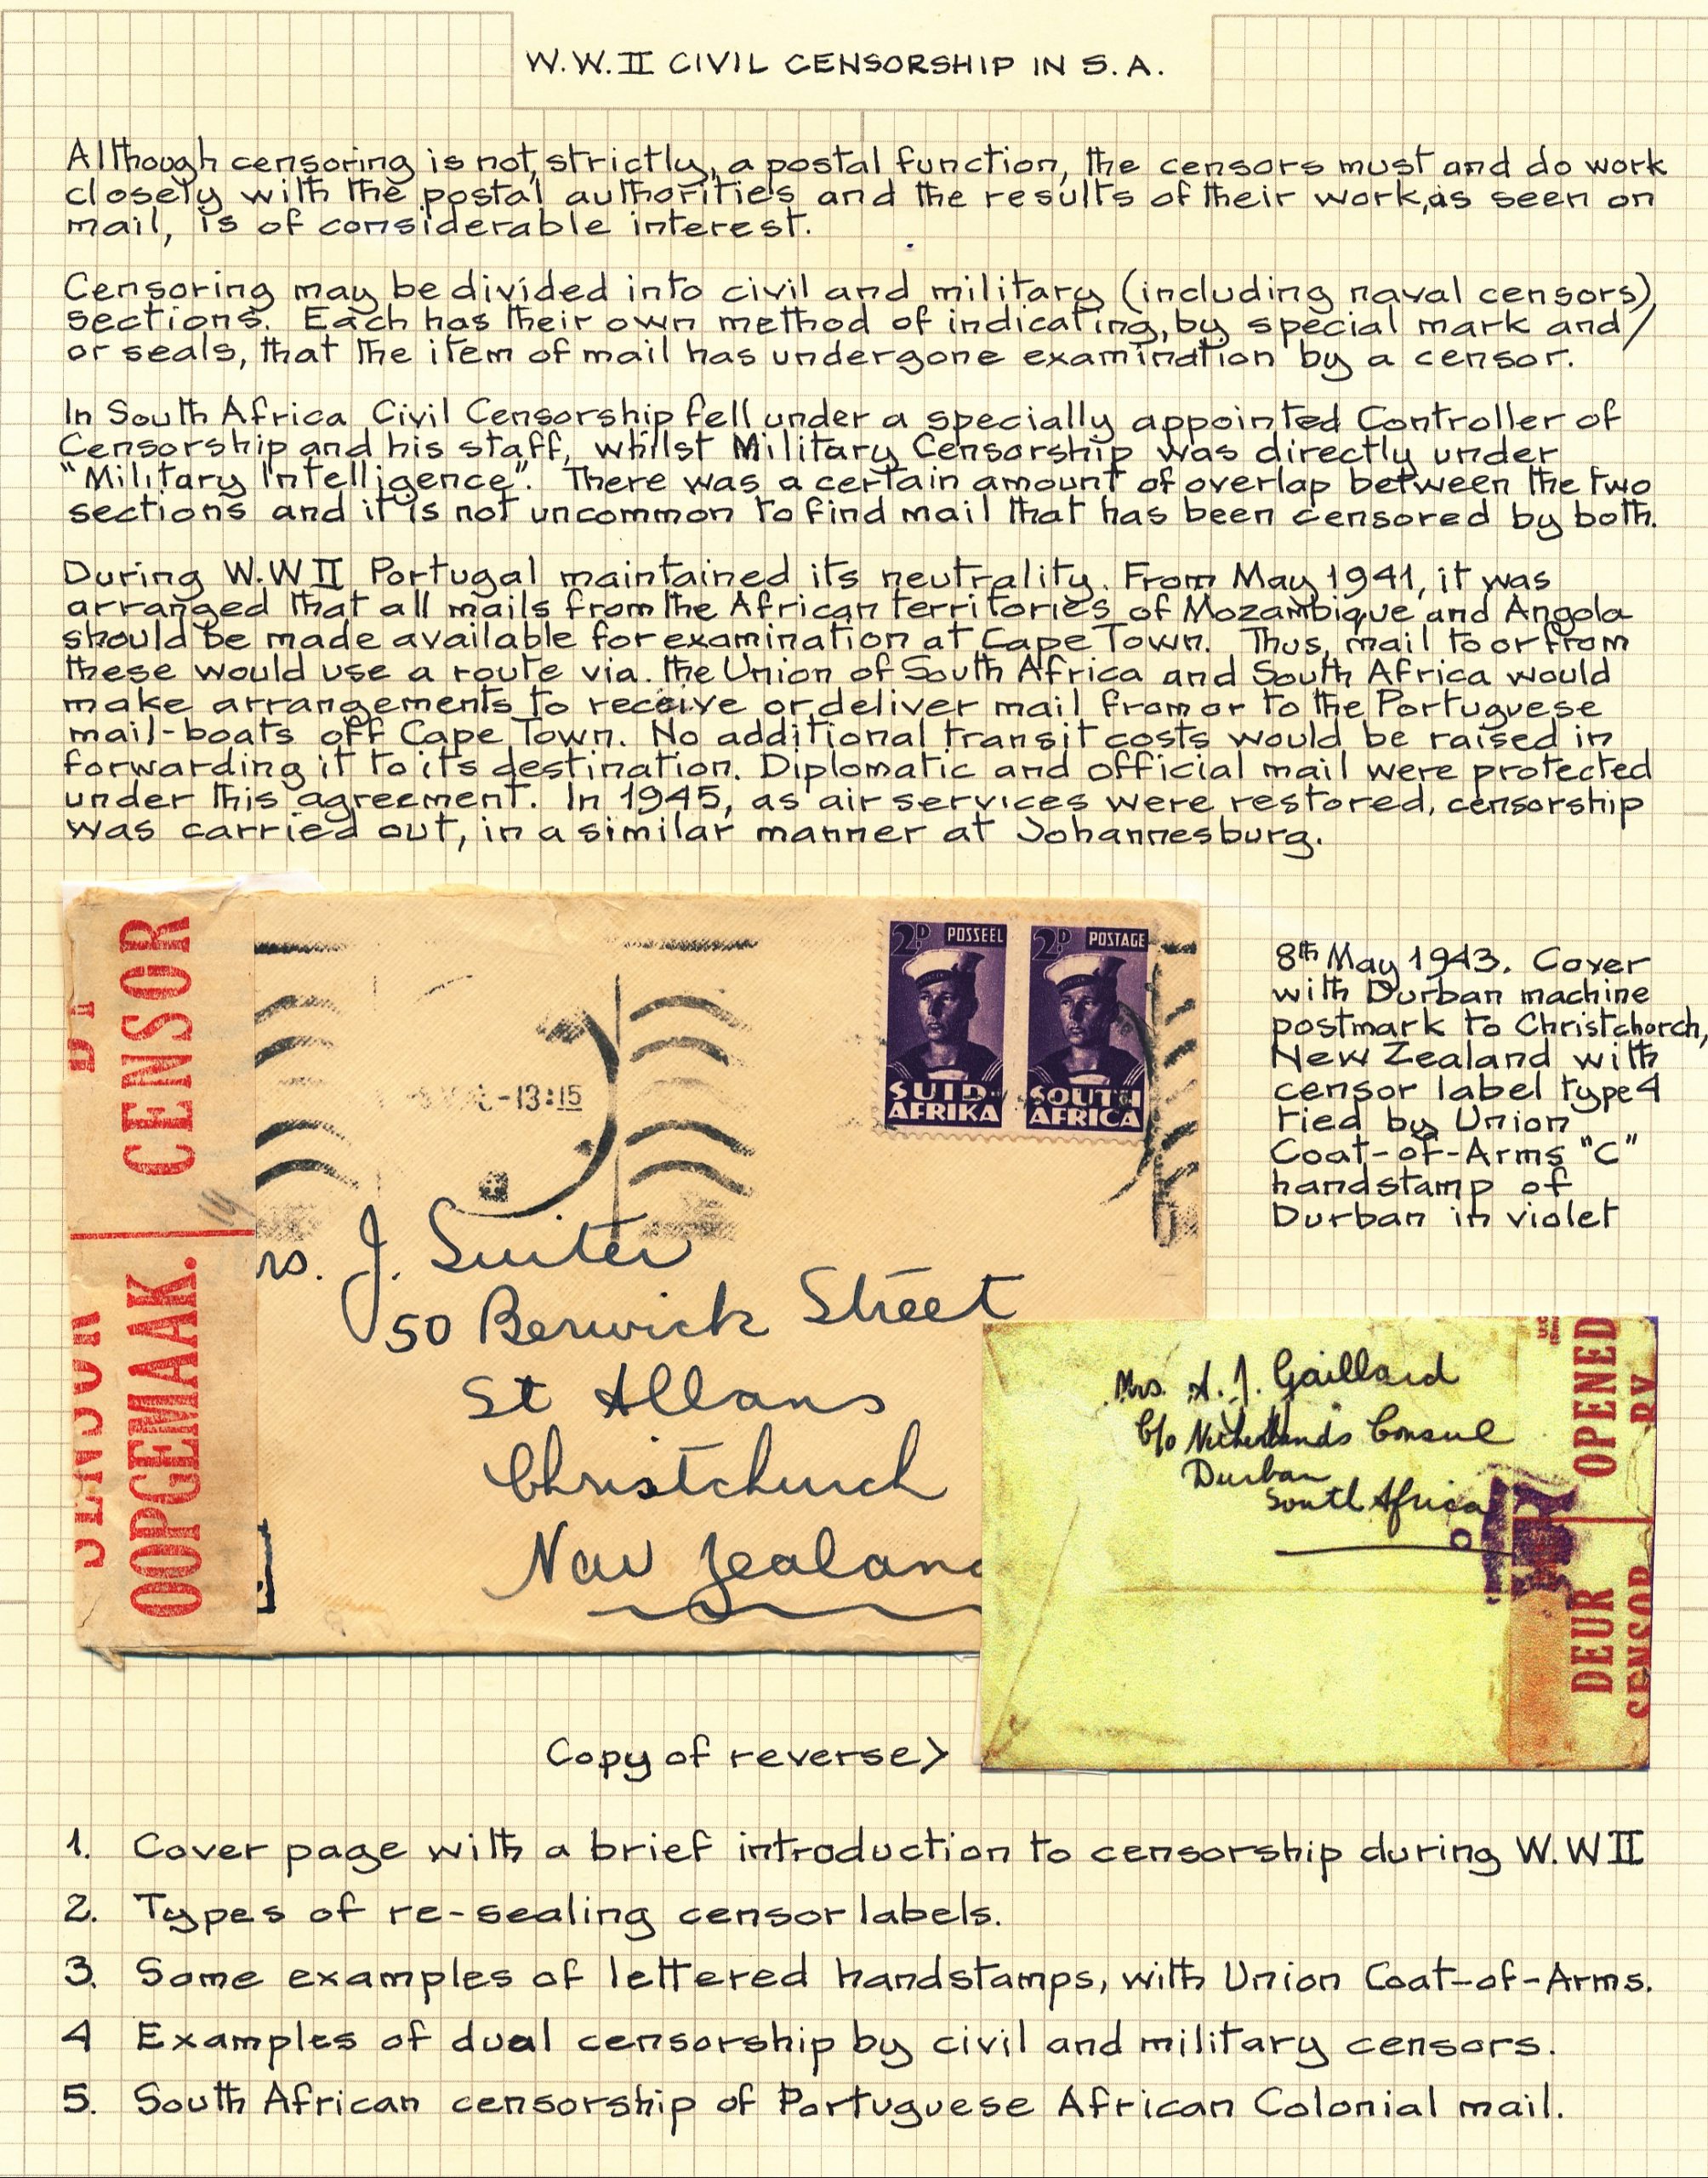 W.W.II CIVIL CENSORSHIP IN S.A.
Although censoring is not, strictly, a postal function, the censors must and do work
closely with the postal authorities and the results of their work, as seen on
mail, is of considerable interest.
Censoring may be divided into civil and military (including naval censors)
sections. Each has their own method of indicating, by special mark and/
or seals, that the item of mail has undergone examination by a censor.
In South Africa Civil Censorship fell under a specially appointed Controller of
Censorship and his staff, whilst Military Censorship was directly under
"Military Intelligence". There was a certain amount of overlap between the two
sections and it is not uncommon to find mail that has been censored by both.
During W.W II Portugal maintained its neutrality. From May 1941, it was
arranged that all mails from the African territories of Mozambique and Angola
should be made available for examination at Cape Town. Thus, mail to or from
these would use a route via. the Union of South Africa and South Africa would
make arrangements to receive or deliver mail from or to the Portuguese
mail-boats off Cape Town. No additional transit costs would be raised in
forwarding it to its destination. Diplomatic and official mail were protected
under this agreement. In 1945, as air services were restored, censorship
was carried out, in a similar manner at Johannesburg.
CENSOR
OOPGEMAAK.
SENSOR
-13:15
2D POSSEEL
SUID-
AFRIKA
2D POSTAGE
SOUTH
AFRICA
rs. J. Suiter
50 Berwick Street
St Albans
Christchurch
New Zealand
8th May 1943. Cover
with Durban machine
postmark to Christchurch,
New Zealand with
censor label type 4
tied by Union
Coat-of-Arms "C"
handstamp of
Durban in violet
Mrs. A. J. Gaillard
C/o Netherlands Consul
Durban
South Africa
OPENED
BY
DEUR
SENSOR
Copy of reverse>
1. Cover page with a brief introduction to censorship during W.W II
2. Types of re-sealing censor labels.
3. Some examples of lettered handstamps, with Union Coat-of-Arms.
4 Examples of dual censorship by civil and military censors.
5. South African censorship of Portuguese African Colonial mail.